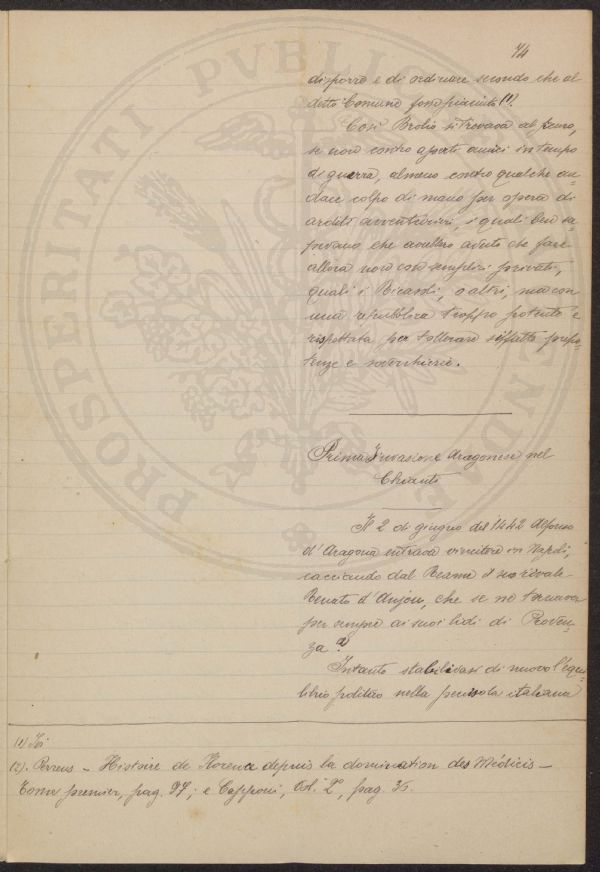 74
disporre e di ordinare secondo che al
detto Comune fosse piaciuto (1).
Così Brolio si trovava al sicuro,
se non contro aperti nemici in tempo
di guerra, almeno contro qualche au-
dace colpo di mano per opera di
arditi avventurieri, i quali ben sa-
pevano che avrebbero avuto che fare
allora non con semplici privati,
quali i Ricasoli, o altri, ma con
una repubblica troppo potente e
rispettata per tollerare siffatte prepo-
tenze e soverchierie.
Prima Invasione Aragonese nel
Chianti
Il 2 di giugno del 1442 Alfonso
d'Aragona entrava vincitore in Napoli,
cacciando dal Reame il suo rivale
Renato d'Anjou, che se ne tornava
per sempre ai suoi lidi di Proven-
za (2).
Intanto stabilivasi di nuovo l'equi-
librio politico nella penisola italiana
(1) Ivi
(2). Perrens - Histoire de Florence depuis la domination des Médicis -
Tome premier, pag. 97; e Capponi, Vol. 2º, pag. 35.
PROSPERITATI PVBLICAE AVGENDAE